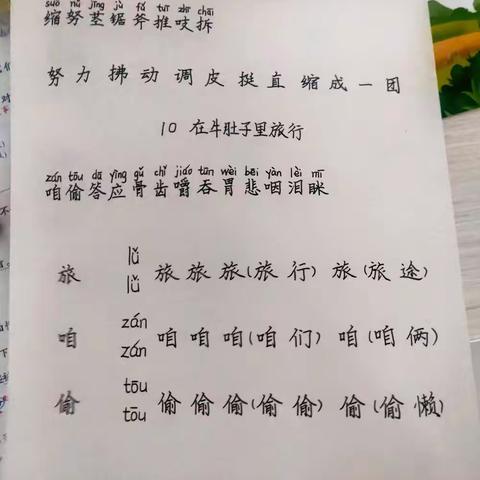 suō nǔ jīng jù fǔ tuī zhī chāi
缩努茎锯斧推吱拆
努力 拂动 调皮 挺直 缩成一团
10 在牛肚子里旅行
zán tōu dā yīng gǔ chǐ jiáo tūn wèi bēi yàn lèi mī
咱偷答应骨齿嚼吞胃悲咽泪眯
旅 lǚ lǚ 旅 旅 旅(旅 行) 旅(旅 途)
咱 zán zán 咱 咱 咱(咱 们) 咱(咱 俩)
偷 tōu tōu 偷 偷 偷(偷 偷) 偷(偷 懒)